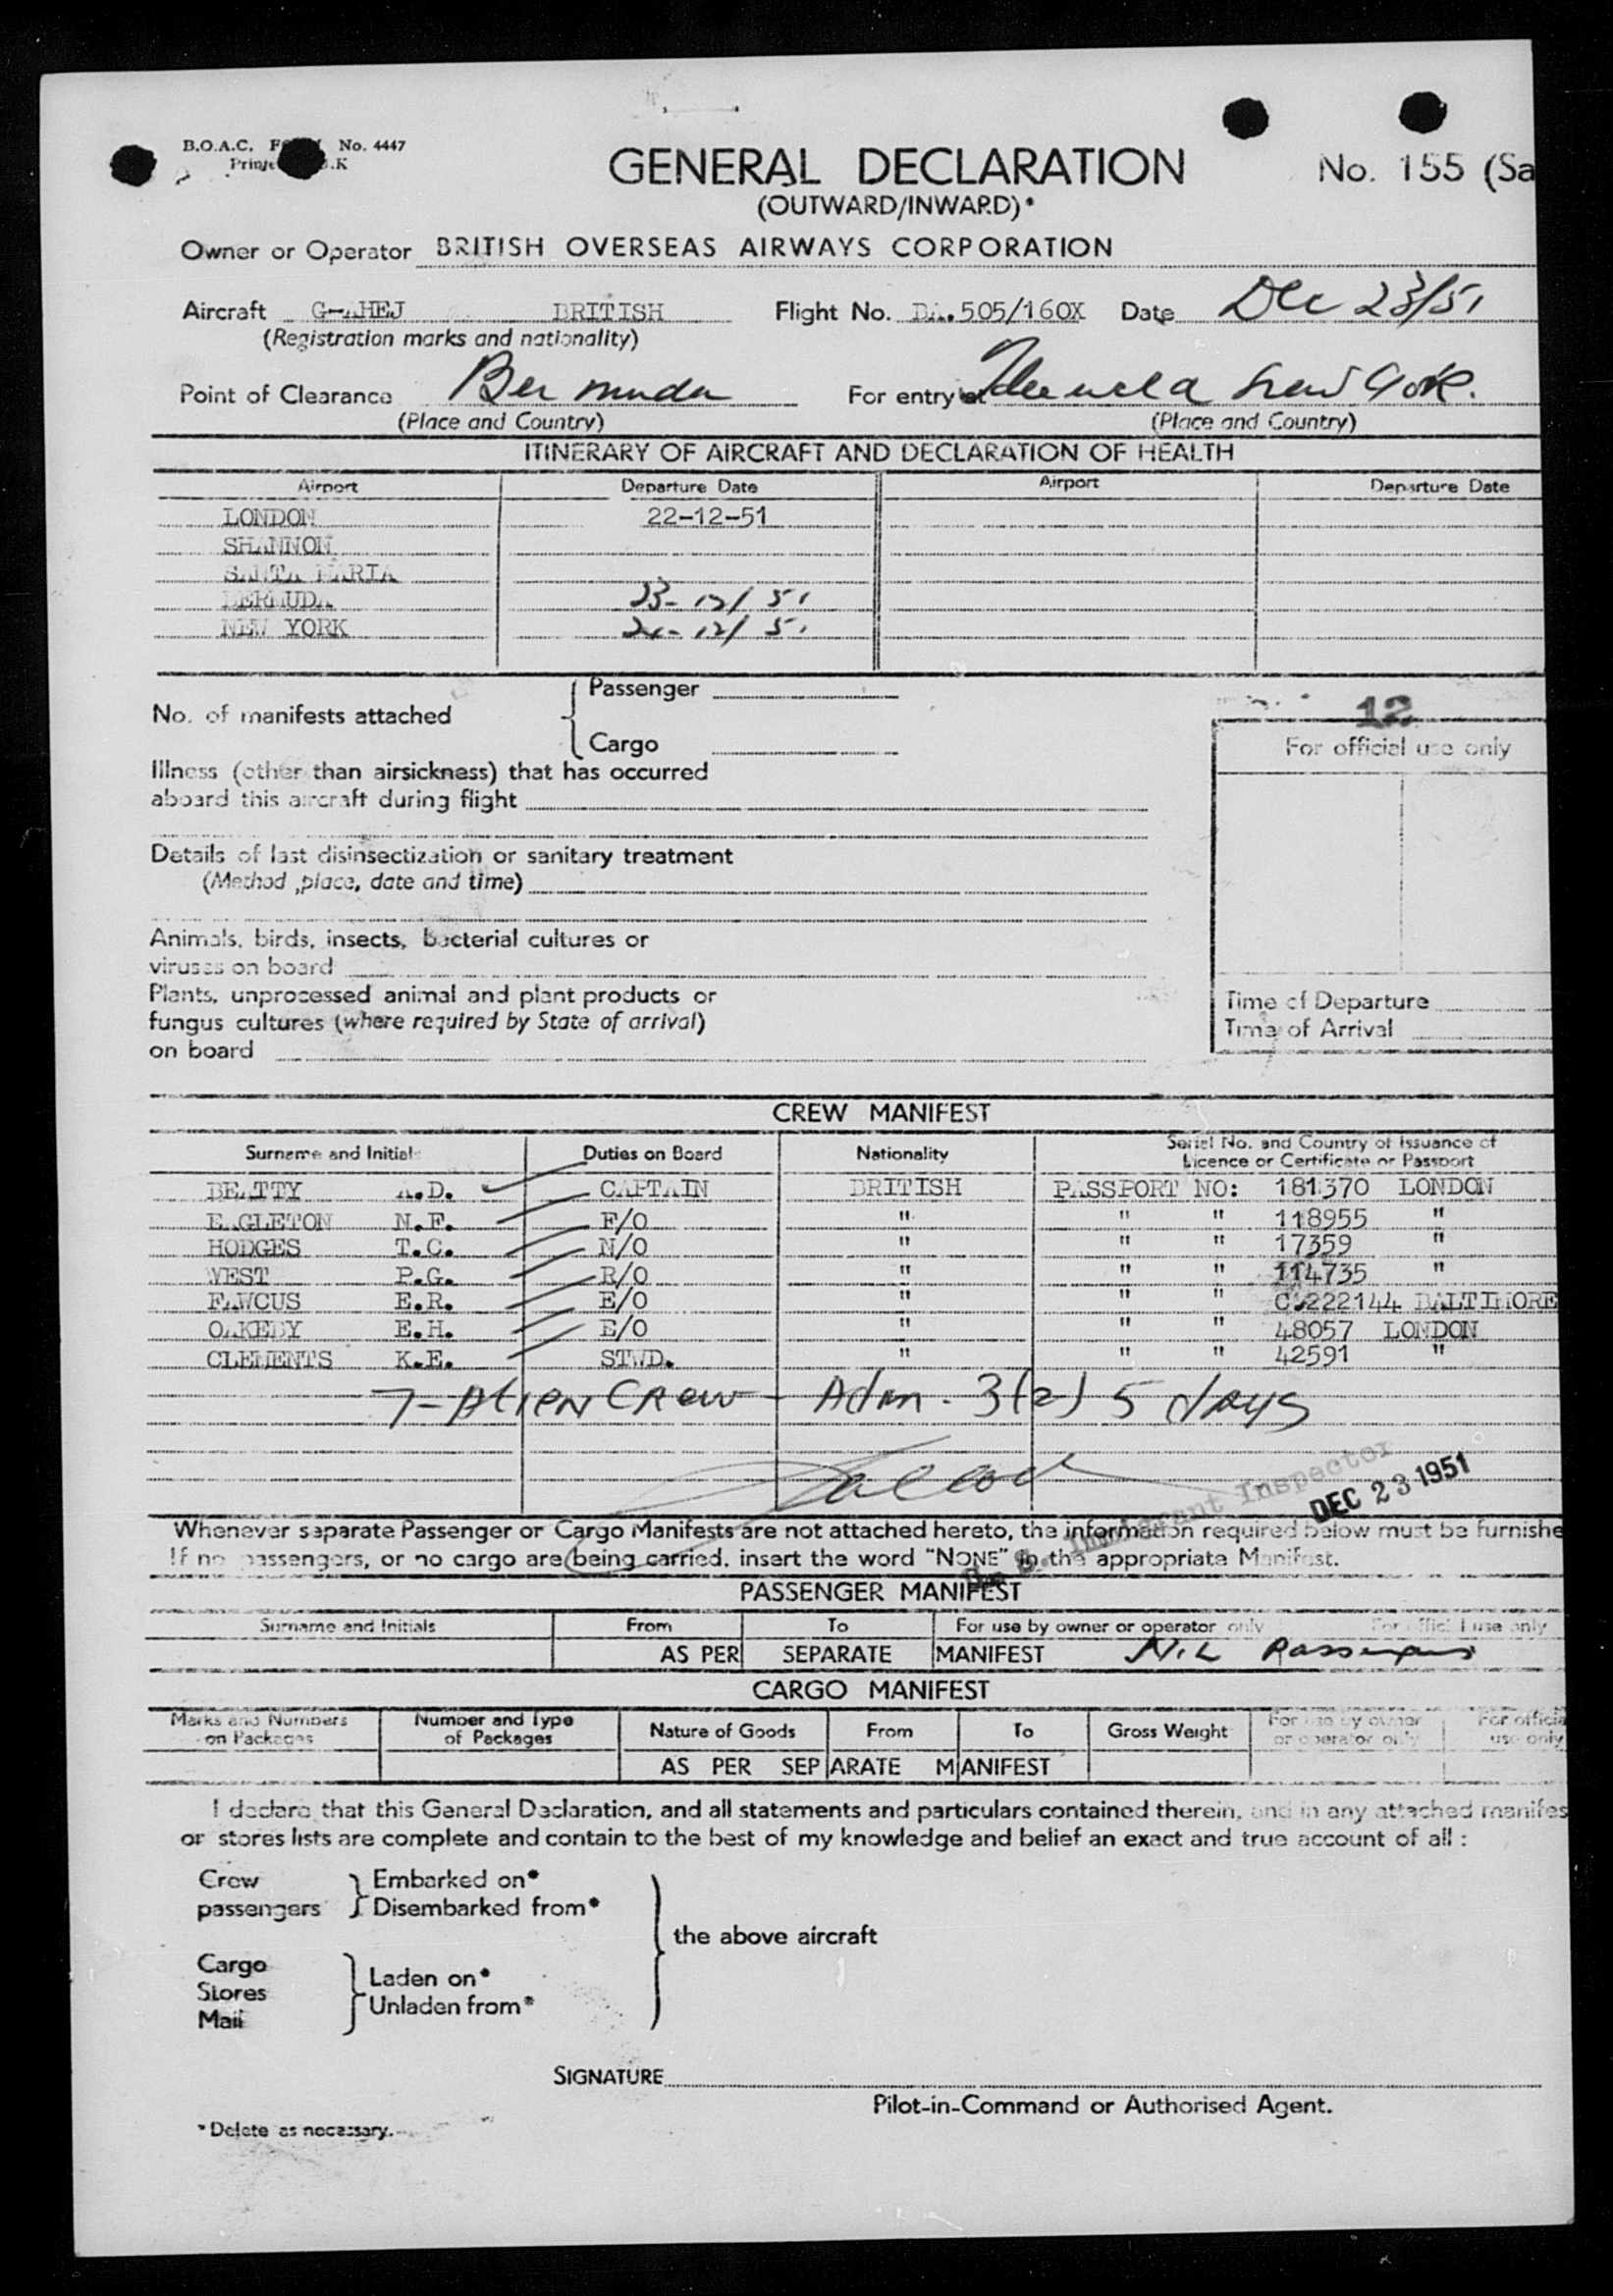 B.O.A.C. No. 4447
GENERAL DECLARATION
No. 155 (Sa
(OUTWARD/INWARD)*
Owner or Operator BRITISH OVERSEAS AIRWAYS CORPORATION
Aircraft G-AHEJ BRITISH Flight No. BA.505/160X Date Dec 23/51
(Registration marks and nationality)
Point of Clearance Bermuda For entry at New York.
(Place and Country) (Place and Country)
ITINERARY OF AIRCRAFT AND DECLARATION OF HEALTH
Airport Departure Date Airport Departure Date
LONDON 22-12-51
SHANNON
SANTA MARIA
BERMUDA 23-12/51
NEW YORK 12/51
No. of manifests attached { Passenger
Cargo
12
For official use only
Illness (other than airsickness) that has occurred
aboard this aircraft during flight
Details of last disinsectization or sanitary treatment
(Method ,place, date and time)
Animals, birds, insects, bacterial cultures or
viruses on board
Plants, unprocessed animal and plant products or
fungus cultures (where required by State of arrival)
on board
Time of Departure
Time of Arrival
CREW MANIFEST
Surname and Initials Duties on Board Nationality Serial No. and Country of Issuance of
Licence or Certificate or Passport
BEATTY A.D. CAPTAIN BRITISH PASSPORT NO: 181370 LONDON
EAGLETON N.F. F/O " " " 118955 "
HODGES T.C. N/O " " " 17359 "
WEST P.G. R/O " " " 114735 "
FAWCUS E.R. E/O " " " C.222144 BALTIMORE
OAKEBY E.H. E/O " " " 48057 LONDON
CLEMENTS K.E. STWD. " " " 42591 "
7- Alien Crew - Adm. 3(2) 5 days
U. S. Immigrant Inspector
DEC 23 1951
Whenever separate Passenger or Cargo Manifests are not attached hereto, the information required below must be furnishe
If no passengers, or no cargo are being carried, insert the word "NONE" in the appropriate Manifest.
PASSENGER MANIFEST
Surname and Initials From To For use by owner or operator only For official use only
AS PER SEPARATE MANIFEST Nil Passengers
CARGO MANIFEST
Marks and Numbers on Packages Number and Type of Packages Nature of Goods From To Gross Weight For use by owner or operator only For officia use only
AS PER SEPARATE MANIFEST
I declare that this General Declaration, and all statements and particulars contained therein, and in any attached manifes
or stores lists are complete and contain to the best of my knowledge and belief an exact and true account of all :
Crew } Embarked on*
passengers } Disembarked from*
the above aircraft
Cargo
Stores } Laden on*
Mail } Unladen from*
SIGNATURE
Pilot-in-Command or Authorised Agent.
* Delete as necessary.